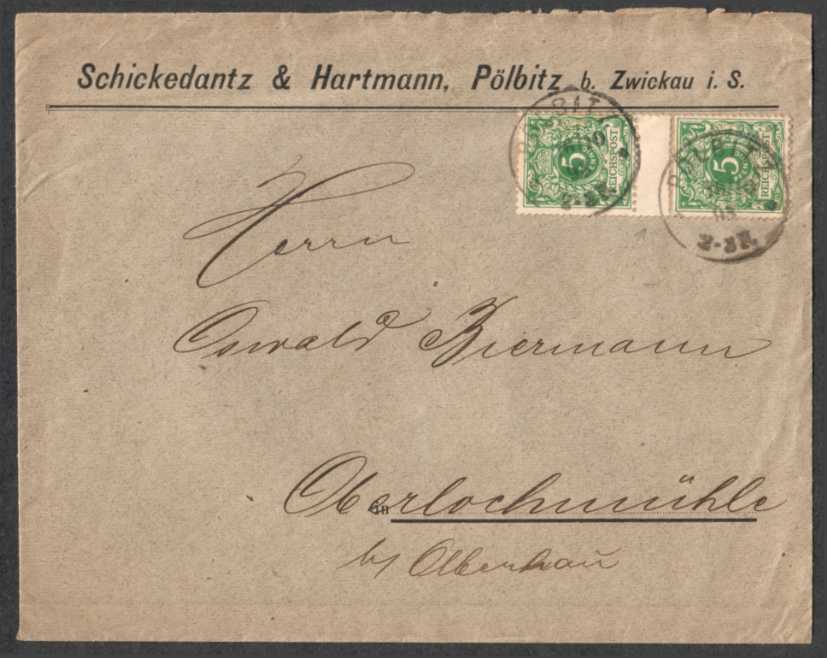 Schickedantz & Hartmann, Pölbitz b. Zwickau i. S.
5 REICHSPOST
5 REICHSPOST
PÖLBITZ
Herrn
Oswald Biermann
in Oberlochmühle
b/ Olbernhau